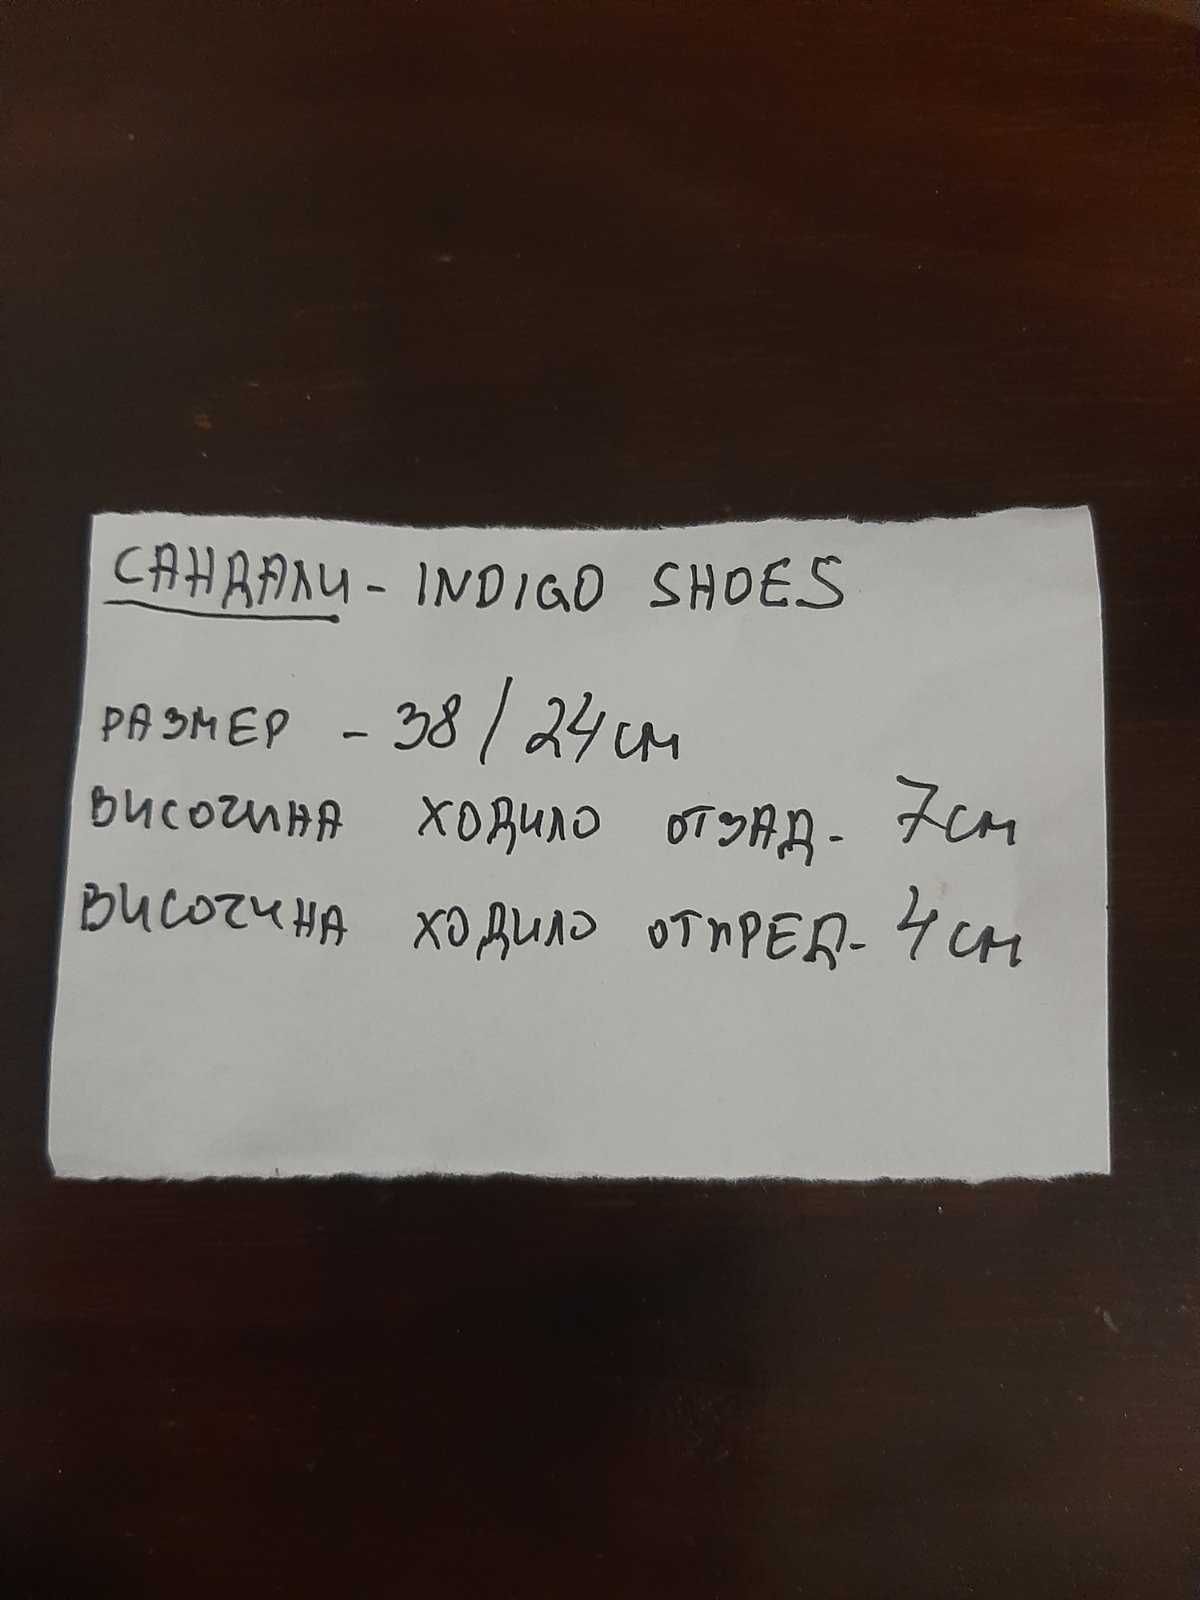 САНДАЛИ - INDIGO SHOES
РАЗМЕР - 38 / 24 см
ВИСОЧИНА ХОДИЛО ОТЗАД - 7 см
ВИСОЧИНА ХОДИЛО ОТПРЕД - 4 см